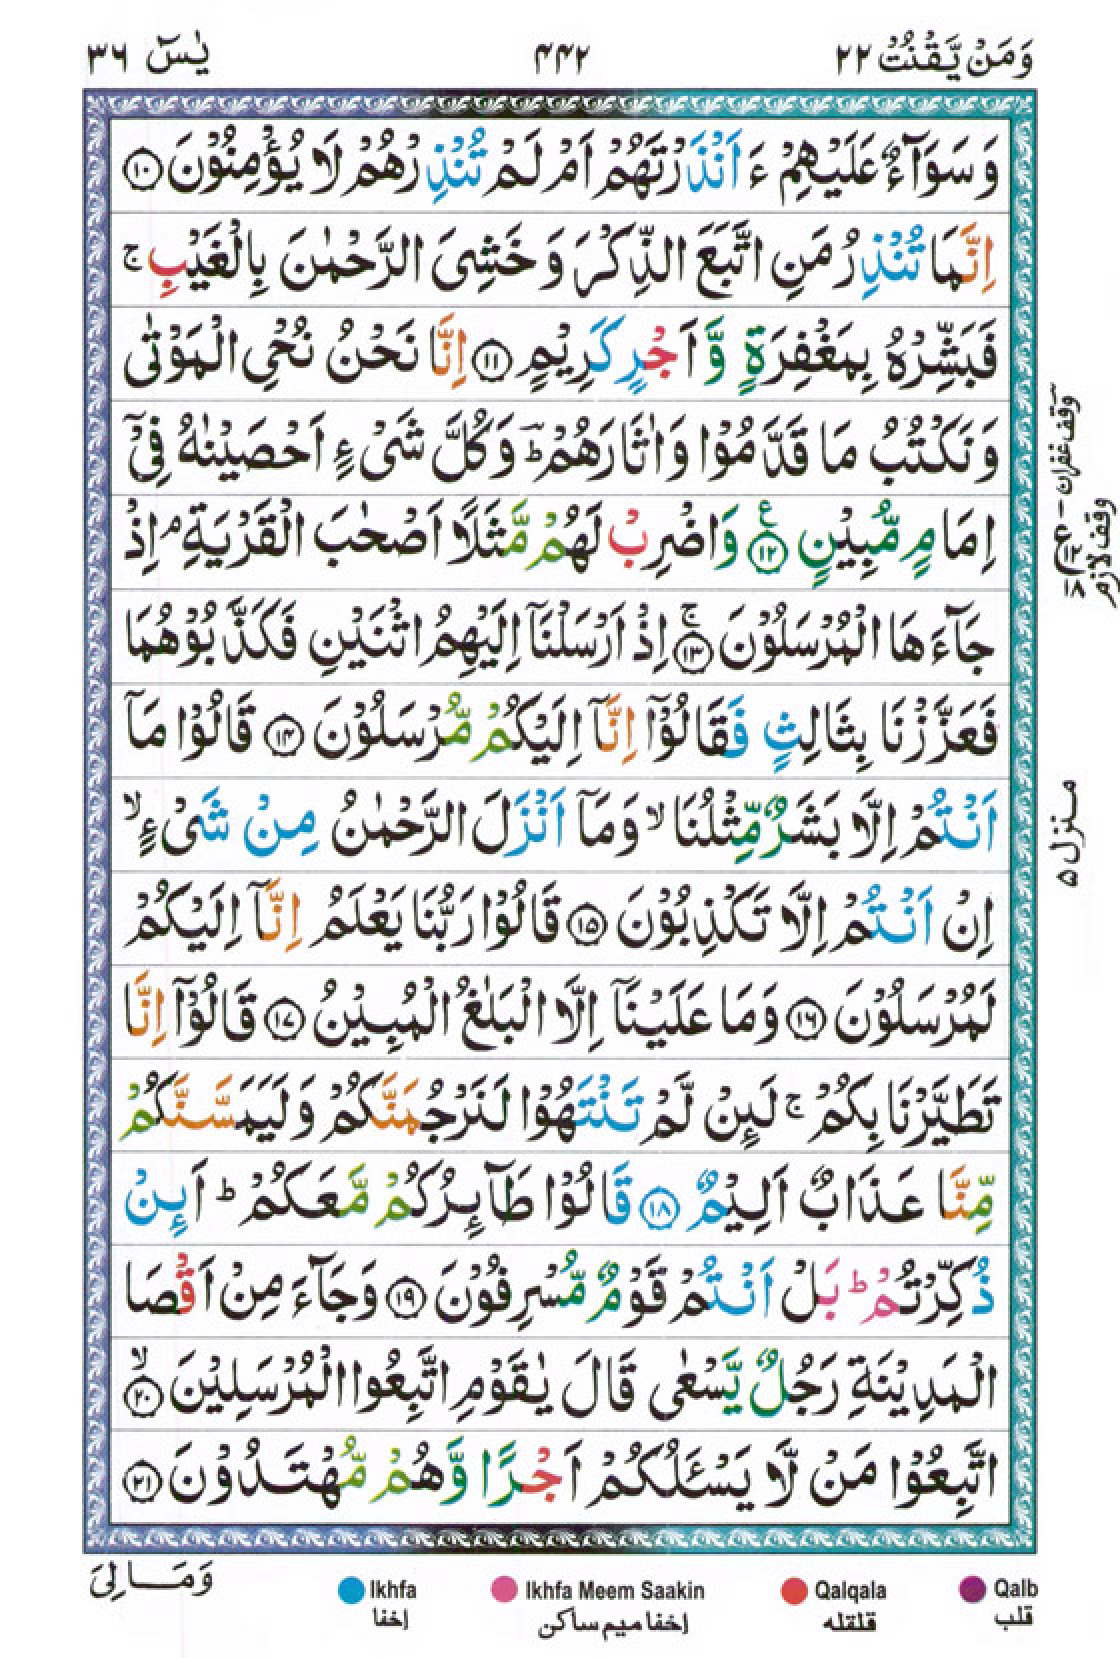 وَمَنْ يَّقْنُتْ ٢٢ ٤٤٢ يٰسٓ ٣٦
وَسَوَآءٌ عَلَيْهِمْ ءَ اَنْذَرْتَهُمْ اَمْ لَمْ تُنْذِرْهُمْ لَا يُؤْمِنُوْنَ ١٠
اِنَّمَا تُنْذِرُ مَنِ اتَّبَعَ الذِّكْرَ وَخَشِیَ الرَّحْمٰنَ بِالْغَيْبِ ۚ
فَبَشِّرْهُ بِمَغْفِرَةٍ وَّ اَجْرٍ كَرِيْمٍ ١١ اِنَّا نَحْنُ نُحْیِ الْمَوْتٰی
وَنَكْتُبُ مَا قَدَّمُوْا وَاٰثَارَهُمْ ؕ وَكُلَّ شَیْءٍ اَحْصَيْنٰهُ فِیْٓ
اِمَامٍ مُّبِيْنٍ ١٢ ع وَاضْرِبْ لَهُمْ مَّثَلًا اَصْحٰبَ الْقَرْيَةِ ۘ اِذْ
جَآءَهَا الْمُرْسَلُوْنَ ۚ ١٣ اِذْ اَرْسَلْنَآ اِلَيْهِمُ اثْنَيْنِ فَكَذَّبُوْهُمَا
فَعَزَّزْنَا بِثَالِثٍ فَقَالُوْٓا اِنَّآ اِلَيْكُمْ مُّرْسَلُوْنَ ١٤ قَالُوْا مَآ
اَنْتُمْ اِلَّا بَشَرٌ مِّثْلُنَا ۙ وَمَآ اَنْزَلَ الرَّحْمٰنُ مِنْ شَیْءٍ ۙ
اِنْ اَنْتُمْ اِلَّا تَكْذِبُوْنَ ١٥ قَالُوْا رَبُّنَا يَعْلَمُ اِنَّآ اِلَيْكُمْ
لَمُرْسَلُوْنَ ١٦ وَمَا عَلَيْنَآ اِلَّا الْبَلٰغُ الْمُبِيْنُ ١٧ قَالُوْٓا اِنَّا
تَطَيَّرْنَا بِكُمْ ۚ لَئِنْ لَّمْ تَنْتَهُوْا لَنَرْجُمَنَّكُمْ وَلَيَمَسَّنَّكُمْ
مِّنَّا عَذَابٌ اَلِيْمٌ ١٨ قَالُوْا طَآئِرُكُمْ مَّعَكُمْ ؕ اَئِنْ
ذُكِّرْتُمْ ؕ بَلْ اَنْتُمْ قَوْمٌ مُّسْرِفُوْنَ ١٩ وَجَآءَ مِنْ اَقْصَا
الْمَدِيْنَةِ رَجُلٌ يَّسْعٰی قَالَ يٰقَوْمِ اتَّبِعُوا الْمُرْسَلِيْنَ ۙ ٢٠
اتَّبِعُوْا مَنْ لَّا يَسْـَٔلُكُمْ اَجْرًا وَّهُمْ مُّهْتَدُوْنَ ٢١
وقف غفران
وقف لازم
منزل ٥
وَمَالِیَ
Ikhfa Ikhfa Meem Saakin Qalqala Qalb
إخفا إخفا میم ساکن قلقله قلب